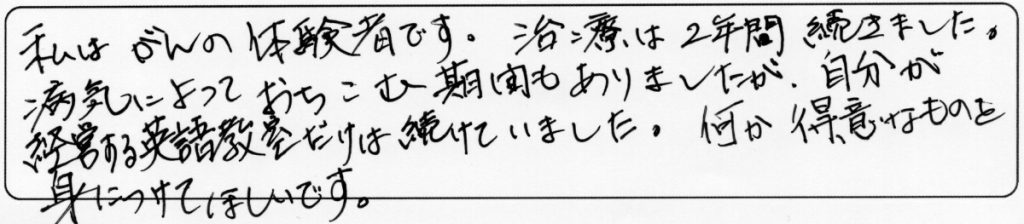 私はがんの体験者です。治療は2年間続きました。
病気によっておちこむ期間もありましたが、自分が
経営する英語教室だけは続けていました。何か得意なものを
身につけてほしいです。